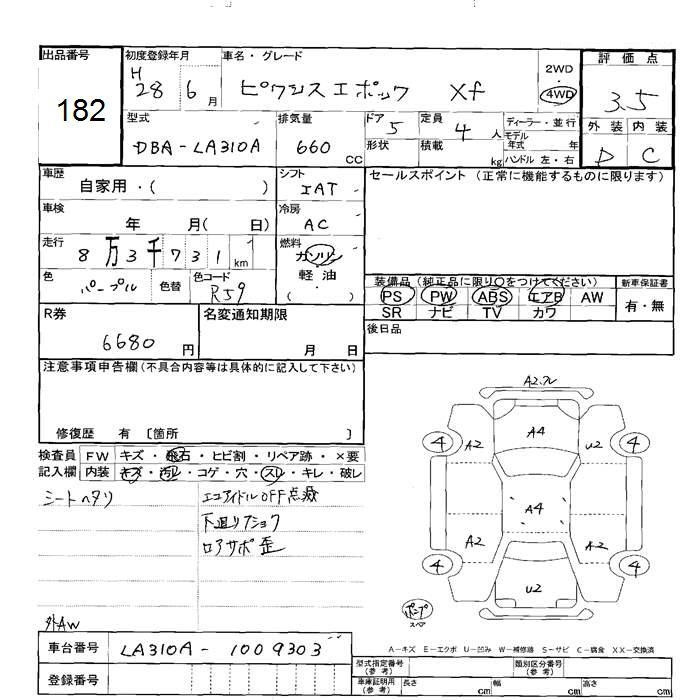 出品番号
182
初度登録年月
H 28 6月
車名・グレード
ピクシスエポック Xf
2WD
4WD
評価点
3.5
外装 内装
D C
型式
DBA-LA310A
排気量
660 CC
ドア
5
形状
定員
4人
積載
kg
ディーラー・並行
モデル年式 年
ハンドル 左・右
車歴
自家用・( )
シフト
IAT
セールスポイント (正常に機能するものに限ります)
車検
年 月( 日)
冷房
AC
走行
8万3千731km
燃料
ガソリン
軽油
( )
色
パープル
色替
色コード
R59
装備品 (純正品に限り○をつけてください)
PS PW ABS エアB AW
SR ナビ TV カワ
新車保証書
有・無
R券
6680円
名変通知期限
月 日
後日品
注意事項申告欄(不具合内容等は具体的に記入して下さい)
修復歴 有 〔箇所 〕
検査員記入欄
FW キズ・飛石・ヒビ割・リペア跡・×要
内装 キズ・汚レ・コゲ・穴・スレ・キレ・破レ
シートヘタリ
エコアイドルOFF点滅
下廻りフショク
ロアサポ歪
外AW
A2.ワレ
4 A2 A4 U2 4
A4
4 A2 A2 4
U2
ポンプ
スペア
A-キズ E-エクボ U-凹み W-補修跡 S-サビ C-腐食 XX-交換済
車台番号
LA310A-1009303
登録番号
型式指定番号(参考)
類別区分番号(参考)
車庫証明用(参考) 長さ cm 幅 cm 高さ cm